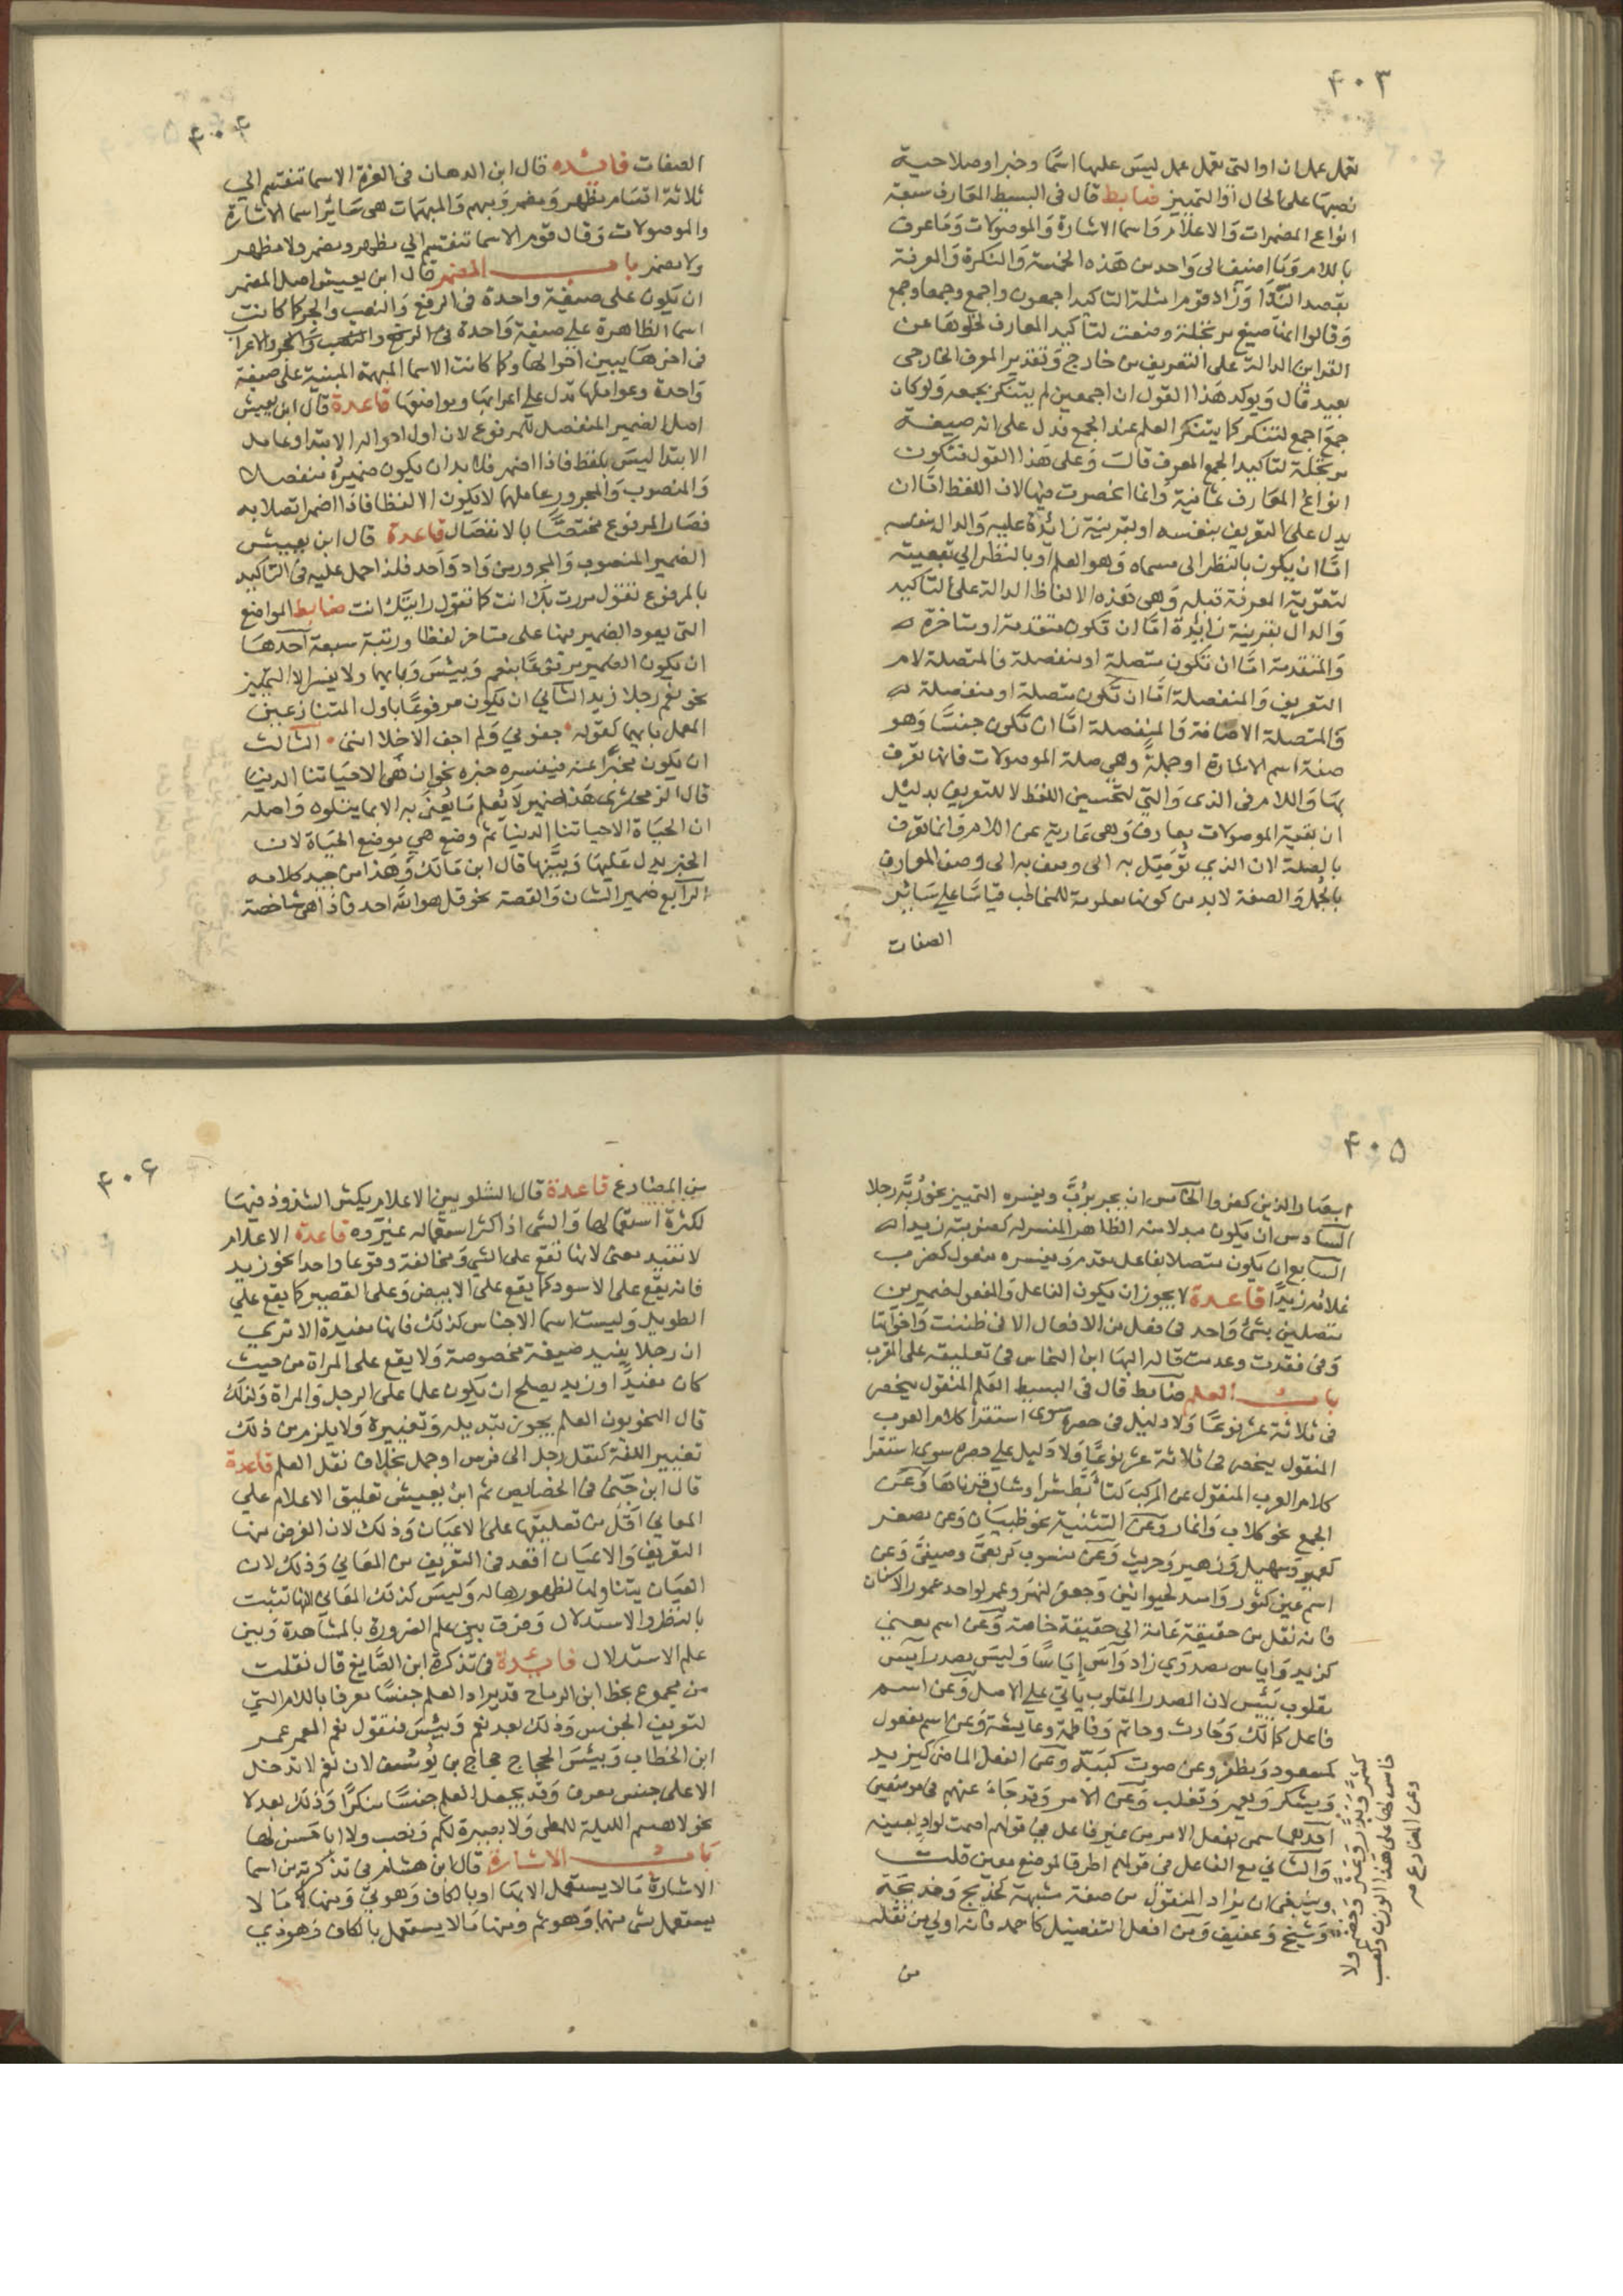 ٤٠٣
تعمل عمل ان او التى تعمل عمل ليس عليها اسما وخبرا وصلاحية
نصبها على الحال او التمييز ضابط قال فى البسيط المعارف سبعة
انواع المضمرات والاعلام واسما الاشارة والموصولات وما عرف
باللام وما اضيف الى واحد من هذه الخمسة والنكرة والمعرفة
بقصد الندا وزاد قوم امثلة التاكيد اجمعون واجمع وجمعا وجمع
وقالوا انها صيغ مرتجلة وضعت لتاكيد المعارف لخلوها عن
القراين الدالة على التعريف من خارج وتقدير المعرف الخارجى
بعيد قال ويوكد هذا القول ان اجمعين لم يتنكر بجمعه ولو كان
جمع اجمع لتنكر كما يتنكر العلم عند الجمع فدل على انه صيغة
مرتجلة لتاكيد الجمع المعرف قال وعلى هذا القول فتكون
انواع المعارف ثمانية وانما انحصرت فيها لان اللفظ اما ان
يدل على التعريف بنفسه او بقرينة زائدة عليه والدال بنفسه
اما ان يكون بالنظر الى مسماه وهو العلم او بالنظر الى تبعيته
لتقوية المعرفة قبله وهى هذه الالفاظ الدالة على التاكيد
والدال بقرينة زائدة اما ان تكون متقدمة او متاخرة
والمتقدمة اما ان تكون متصلة او منفصلة فالمتصلة لام
التعريف والمنفصلة اما ان تكون متصلة او منفصلة
والمتصلة الاضافة والمنفصلة اما ان تكون جنسا وهو
صفة اسم الاشارة او جملة وهى صلة الموصولات فانها تعرف
بها واللام فى الذى والتى لتحسين اللفظ لا للتعريف بدليل
ان بقية الموصولات معارف وهى عارية عن اللام وانما تعرف
بالصلة لان الذي توصل به الى وصف المعارف
بالجمل والصفة لابد من كونها معلومة للمخاطب قياسا على سائر
الصفات
٤٠٤
الصفات فائده قال ابن الدهان فى الغرة الاسما تنقسم الى
ثلاثة اقسام مظهر ومضمر ومبهم والمبهمات هى سائر اسما الاشارة
والموصولات وقال قوم الاسما تنقسم الى مظهر ومضمر ولا مظهر
ولا مضمر باب المضمر قال ابن يعيش اصل المضمر
ان يكون على صيغة واحدة فى الرفع والنصب والجر كما كانت
اسما الظاهرة على صيغة واحدة فى الرفع والنصب والجر والاعراب
فى اخرها يبين احوالها وكما كانت الاسما المبهمة المبنية على صيغة
واحدة وعواملها تدل على اعرابها ومواضعها قاعدة قال ابن يعيش
اصل الضمير المنفصل للمرفوع لان اول احواله الابتدا وعامل
الابتدا ليس بلفظ فاذا اضمر فلا بد ان يكون ضميره منفصلا
والمنصوب والمجرور عاملها لا يكون الا لفظا فاذا اضمر اتصلا به
فصار المرفوع مختصا بالانفصال قاعدة قال ابن يعيش
الضمير المنصوب والمجرور من واد واحد فلذا حمل عليه فى التاكيد
بالمرفوع تقول مررت بك انت كما تقول رايتك انت ضابط المواضع
التى يعود الضمير فيها على متاخر لفظا ورتبة سبعة احدها
ان يكون الضمير مرفوعا بنعم وبيس وبابهما ولا يفسر الا بالتمييز
نحو نعم رجلا زيد الثانى ان يكون مرفوعا باول المتنازعين
المعمل ثانيهما كقوله جفونى ولم اجف الاخلا اننى الثالث
ان يكون مخبرا عنه فيفسره خبره نحو ان هى الاحياتنا الدنيا
قال الزمخشرى هذا ضمير لا يعلم ما يعنى به الا بما يتلوه واصله
ان الحياة الاحياتنا الدنيا ثم وضع هي موضع الحياة لان
الخبر يدل عليها ويبينها قال ابن مالك وهذا من جيد كلامه
الرابع ضمير الشان والقصة نحو قل هو الله احد فاذا هى شاخصة
٤٠٥
ابصار الذين كفروا الخامس ان يجر برب ويفسره التمييز نحو ربه رجلا
السادس ان يكون مبدلا منه الظاهر المفسر له كضربته زيدا
السابع ان يكون متصلا بفاعل مقدم ويفسره مفعول كضرب
غلامه زيدا قاعدة لا يجوز ان يكون الفاعل والمفعول ضميرين
متصلين بشئ واحد فى فعل من الافعال الا فى ظننت واخواتها
وفى فقدت وعدمت قاله البها ابن النحاس فى تعليقه على المقرب
باب العلم ضابط قال فى البسيط العلم المنقول ينحصر
فى ثلاثة عشر نوعا ولا دليل فى حصره سوى استقرا كلام العرب
المنقول ينحصر فى ثلاثة عشر نوعا ولا دليل على حصره سوى استقرا
كلام العرب المنقول عن المركب كتابط شرا وشاب قرناها وعن
الجمع نحو كلاب وانمار وعن التثنية نحو ظبيان وعن مصغر
كعمير وسهيل وزهير وحريث وعن منسوب كربعى وصيفى وعن
اسم عين كثور واسد لحيوانين وجعفر لنهر وعمرو لواحد عمور الاسنان
فانه نقل من حقيقة عامة الى حقيقة خاصة وعن اسم معنى
كزيد واياس مصدرى زاد واس اياسا وليس مصدر ايس
مقلوب يئس لان المصدر المقلوب ياتى على الاصل وعن اسم
فاعل كمالك وحارث وحاتم وفاطمة وعايشة وعن اسم مفعول
كمسعود ومظفر وعن صوت كببة وعن الفعل الماضى
ويشكر ويعمر وتغلب وعن الامر وقد جاء عنهم فى موضعين
احدهما سمى بفعل الامر من غير فاعل فى قولهم اصمت لواد بعينه
والثانى مع الفاعل فى قولهم اطرقا لموضع معين قلت
وينبغى ان يزاد المنقول من صفة مشبهة كخديج وخديجة
وشيخ وعفيف ومن افعل التفضيل كاحمد فانه اولى من نقله
من
كشمر وبذر وعثر وخضم ولا
خامس لها على هذا الوزن وكعب
وعن المضارع صر
٤٠٦
من المضارع قاعدة قال الشلوبين الاعلام يكثر الشذوذ فيها
لكثرة استعمالها والشى اذا كثر استعماله غيروه قاعدة الاعلام
لا تفيد معنى لانها تقع على الشى ومخالفه وقوعا واحدا نحو زيد
فانه يقع على الاسود كما يقع على الابيض وعلى القصير كما يقع على
الطويل وليست اسما الاجناس كذلك فانها مفيدة الا ترى
ان رجلا يفيد صيغة مخصوصة ولا يقع على المراة من حيث
كان مفيدا وزيد يصلح ان يكون علما على الرجل والمراة ولذلك
قال النحويون العلم يجوز تبديله وتغييره ولا يلزم من ذلك
تغيير اللغة كنقل رجل الى فرس او جمل بخلاف نقل العلم قاعدة
قال ابن جنى فى الخصايص ثم ابن يعيش تعليق الاعلام على
المعانى اقل من تعليقها على الاعيان وذلك لان الغرض منها
التعريف والاعيان اقعد فى التعريف من المعانى وذلك لان
العيان يتناولها لظهورها له وليس كذلك المعانى لانها تثبت
بالنظر والاستدلال وفرق بين علم الضرورة بالمشاهدة وبين
علم الاستدلال فائدة فى تذكرة ابن الصايغ قال نقلت
من مجموع بخط ابن الرماح قد يراد العلم جنسا معرفا باللام التى
لتعريف الجنس وذلك بعد نعم وبئس فتقول نعم العمر عمر
ابن الخطاب وبيئس الحجاج حجاج بن يوسف لان نعم لا تدخل
الا على جنس معرف وقد يجعل العلم جنسا منكرا وذلك بعد لا
نحو لا هيثم الليلة للمطى ولا بصيرة لكم ونصب ولا ابا حسن لها
باب الاشارة قال ابن هشام فى تذكرته من اسما
الاشارة ما لا يستعمل الا بها او بالكاف وهو تى ومنها ما لا
يستعمل بشى منها وهو ثم ومنها ما لا يستعمل بالكاف وهو ذي